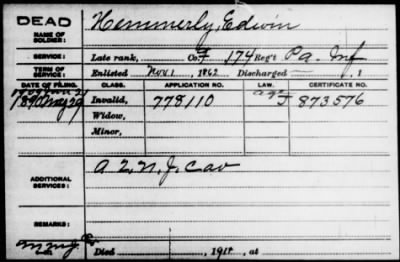 DEAD
NAME OF SOLDIER: Hemmerly, Edwin
SERVICE: Late rank, Co. G, 174 Reg't Pa. Inf
TERM OF SERVICE: Enlisted Nov 1, 1862 Discharged , 1
DATE OF FILING. CLASS. APPLICATION NO. LAW. CERTIFICATE NO.
1890 Invalid, 778110 F 873576
Widow,
Minor,
ADDITIONAL SERVICES: A 2. N. J. Cav
REMARKS:
Died , 191 , at